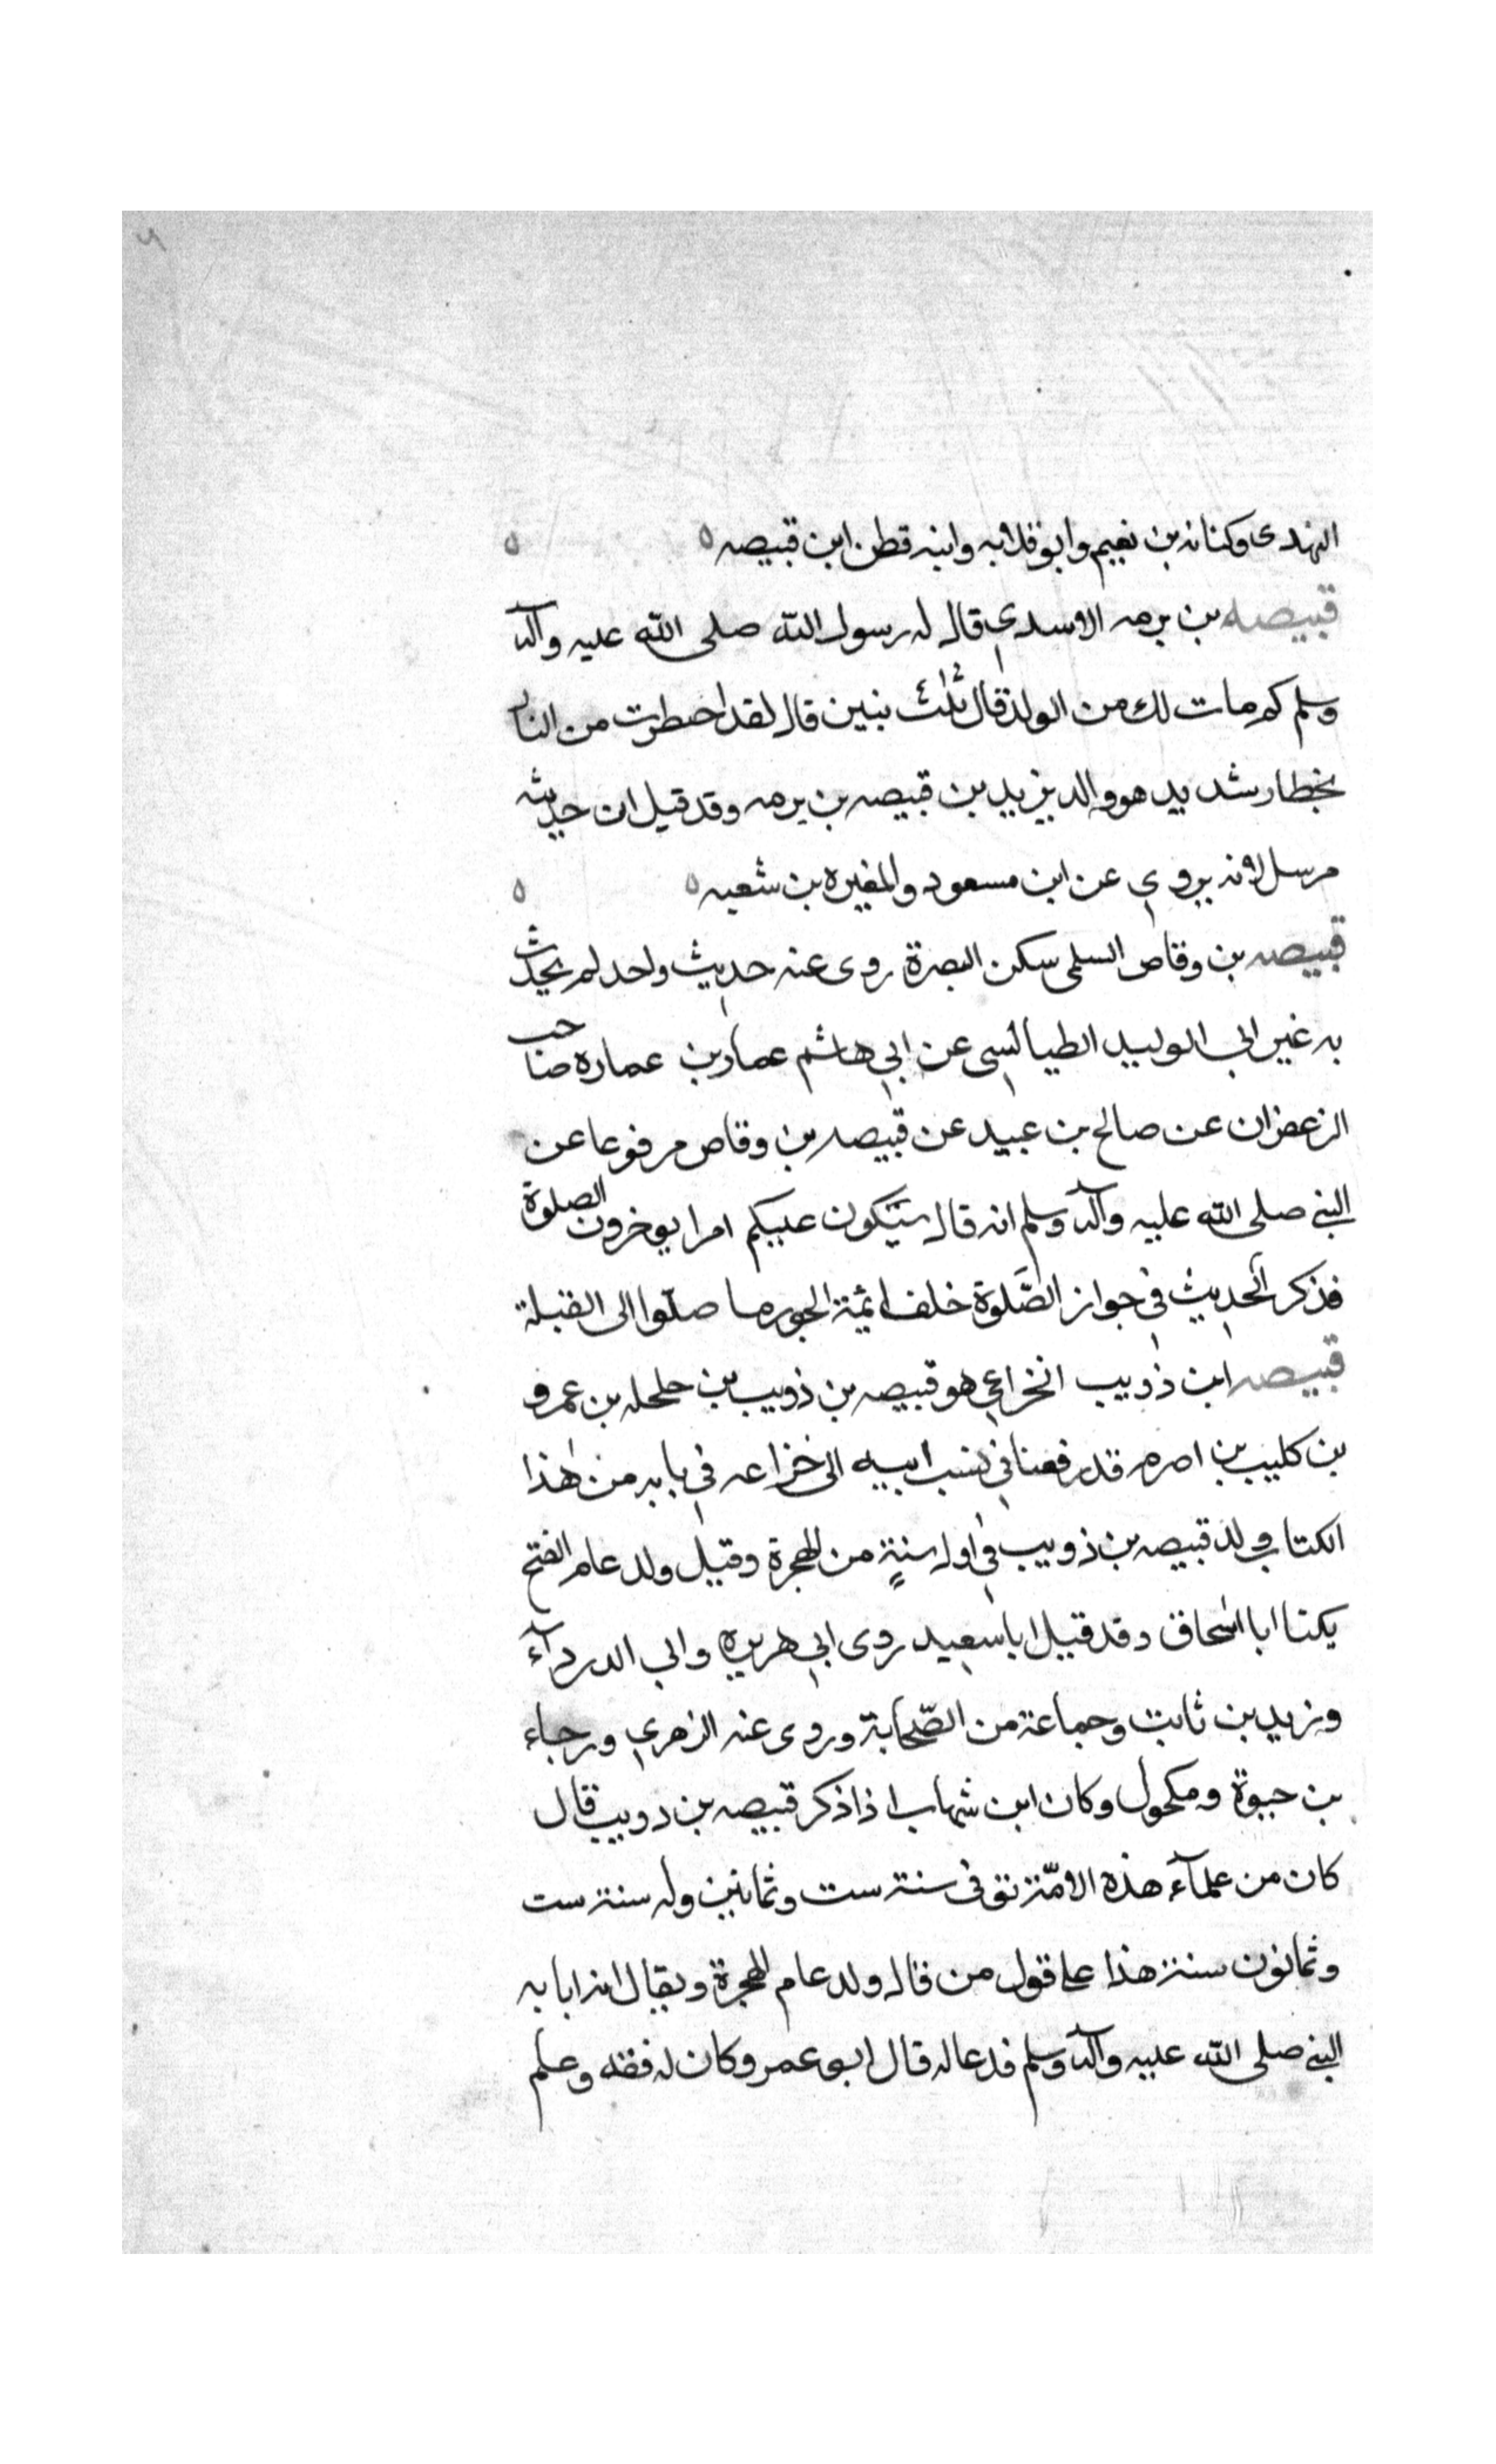 النهدى وكنانه بن نعيم وابو قلابه وابنه قطن ابن قبيصه ه ه
قبيصه بن برمه الاسدي قال له رسول الله صلى الله عليه وآله
وسلم كم مات لك من الولد قال ثلث بنين قال لقد احتظرت من النار
بحظار شديد هو والد يزيد بن قبيصه بن برمه وقد قيل ان حديثه
مرسل لانه يروي عن ابن مسعود والمغيره بن شعبه ه ه
قبيصه بن وقاص السلمى سكن البصرة روى عنه حديث واحد لم يحدث
به غير ابي الوليد الطيالسى عن ابي هاشم عمار بن عماره صاحب
الزعفران عن صالح بن عبيد عن قبيصه بن وقاص مرفوعا عن
النبي صلى الله عليه وآله وسلم انه قال سيكون عليكم امرا يوخرون الصلوة
فذكر الحديث في جواز الصَّلوة خلف ائمة الجور ما صلّوا الى القبلة
قبيصه ابن ذويب الخزاعي هو قبيصه بن ذويب بن حلحله بن عمرو
بن كليب بن اصرم قد رفعنا في نسب ابيه الى خزاعه في بابه من هذا
الكتاب ولد قبيصه بن ذويب في اول سنةٍ من الهجرة وقيل ولد عام الفتح
يكنا ابا اسحاق وقد قيل ابا سعيد روى ابي هريره وابي الدردآء
وزيد بن ثابت وجماعة من الصّحابة وروى عنه الزهري ورجاء
بن حيوة ومكحول وكان ابن شهاب اذا ذكر قبيصه بن دويب قال
كان من علمآء هذه الامّة توفى سنة ست وثمانين وله سنة ست
وثمانون سنة هذا على قول من قال ولد عام الهجرة ويقال انه اتا به
النبي صلى الله عليه وآله وسلم فدعا له قال ابو عمر وكان له فقه وعلم